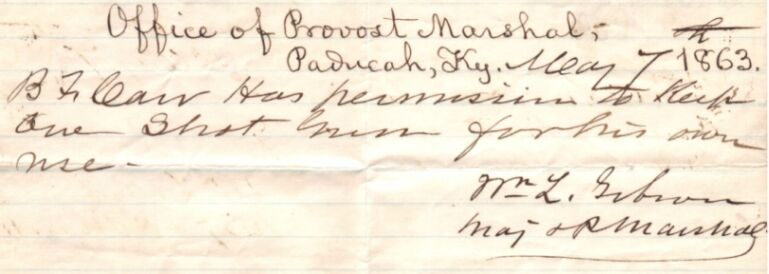 Office of Provost Marshal,
Paducah, Ky. May 7th 1863.
B F Carr Has permission to Keep
one Shot Gun for his own
use.
Wm L. Gibson
Maj & P Marshal